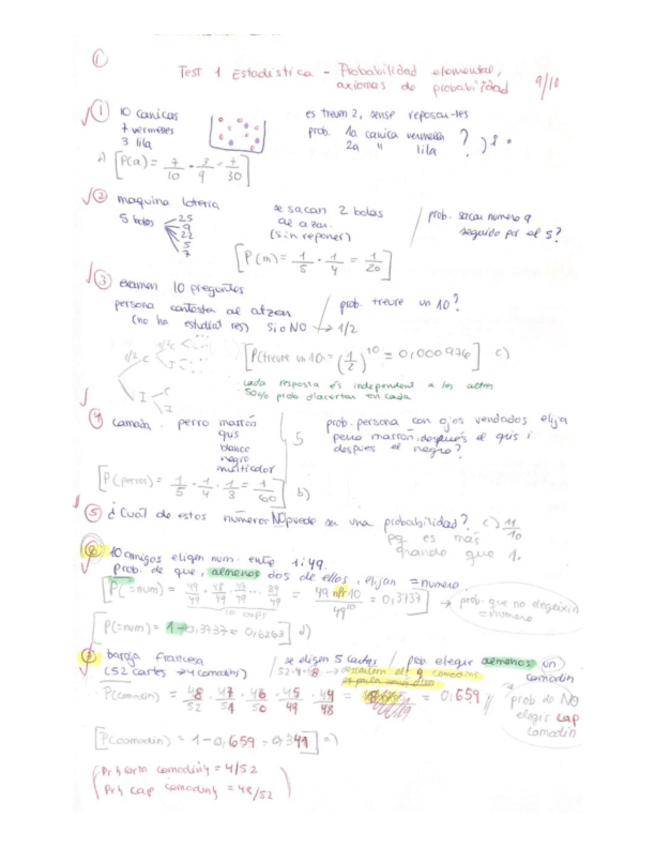 ①
Test 1 Estadística - Probabilidad elemental,
axiomas de probabilidad 9/10
① 10 canicas
7 vermelles
3 lila
es treuen 2, sense reposar-les
prob. 1a canica vermella ?
2a " lila
a) [P(a) = 7/10 · 3/9 = 7/30]
② maquina loteria
5 bolas 25
9
22
5
7
se sacan 2 bolas
al azar.
(sin reponer)
prob. sacar numero 9
seguido por el 5?
[P(m) = 1/5 · 1/4 = 1/20]
③ examen 10 preguntes
persona contesta al atzar
(no ha estudiat res) Si o NO → 1/2
prob. treure un 10?
1/2 C
I
I
C
I
[P(treure un 10 = (1/2)^10 = 0,000976] c)
cada resposta és independent a les altres
50% prob d'acertar en cada
④ camada. perro marrón
gris
blanco
negro
multicolor
5
prob. persona con ojos vendados elija
perro marrón, después el gris i
despues el negro?
[P(perros) = 1/5 · 1/4 · 1/3 = 1/60] b)
⑤ ¿Cuál de estos números NO puede ser una probabilidad? c) 11/10
pq es más
grande que 1.
⑥ 10 amigos eligen num. entre 1 i 49.
Prob. de que, almenos dos de ellos, elijan = numero
[P(=num) = 49/49 · 48/49 · 47/49 · ... 39/49 = 49 nPr 10 / 49^10 = 0,3737] → prob. que no elegeixin
= numero
10 cops
[P(=num) = 1-0,3737 = 0,6263] d)
⑦ baraja francesa
(52 cartes → 4 comodins)
se eligen 5 cartas / prob elegir almenos un
comodin
P(comodin) = 48/52 · 47/51 · 46/50 · 45/49 · 44/48 = = 0,659
prob de NO
elegir cap
comodin
[P(comodin) = 1-0,659 = 0,341]
Pr{carta comodin} = 4/52
Pr{cap comodin} = 48/52